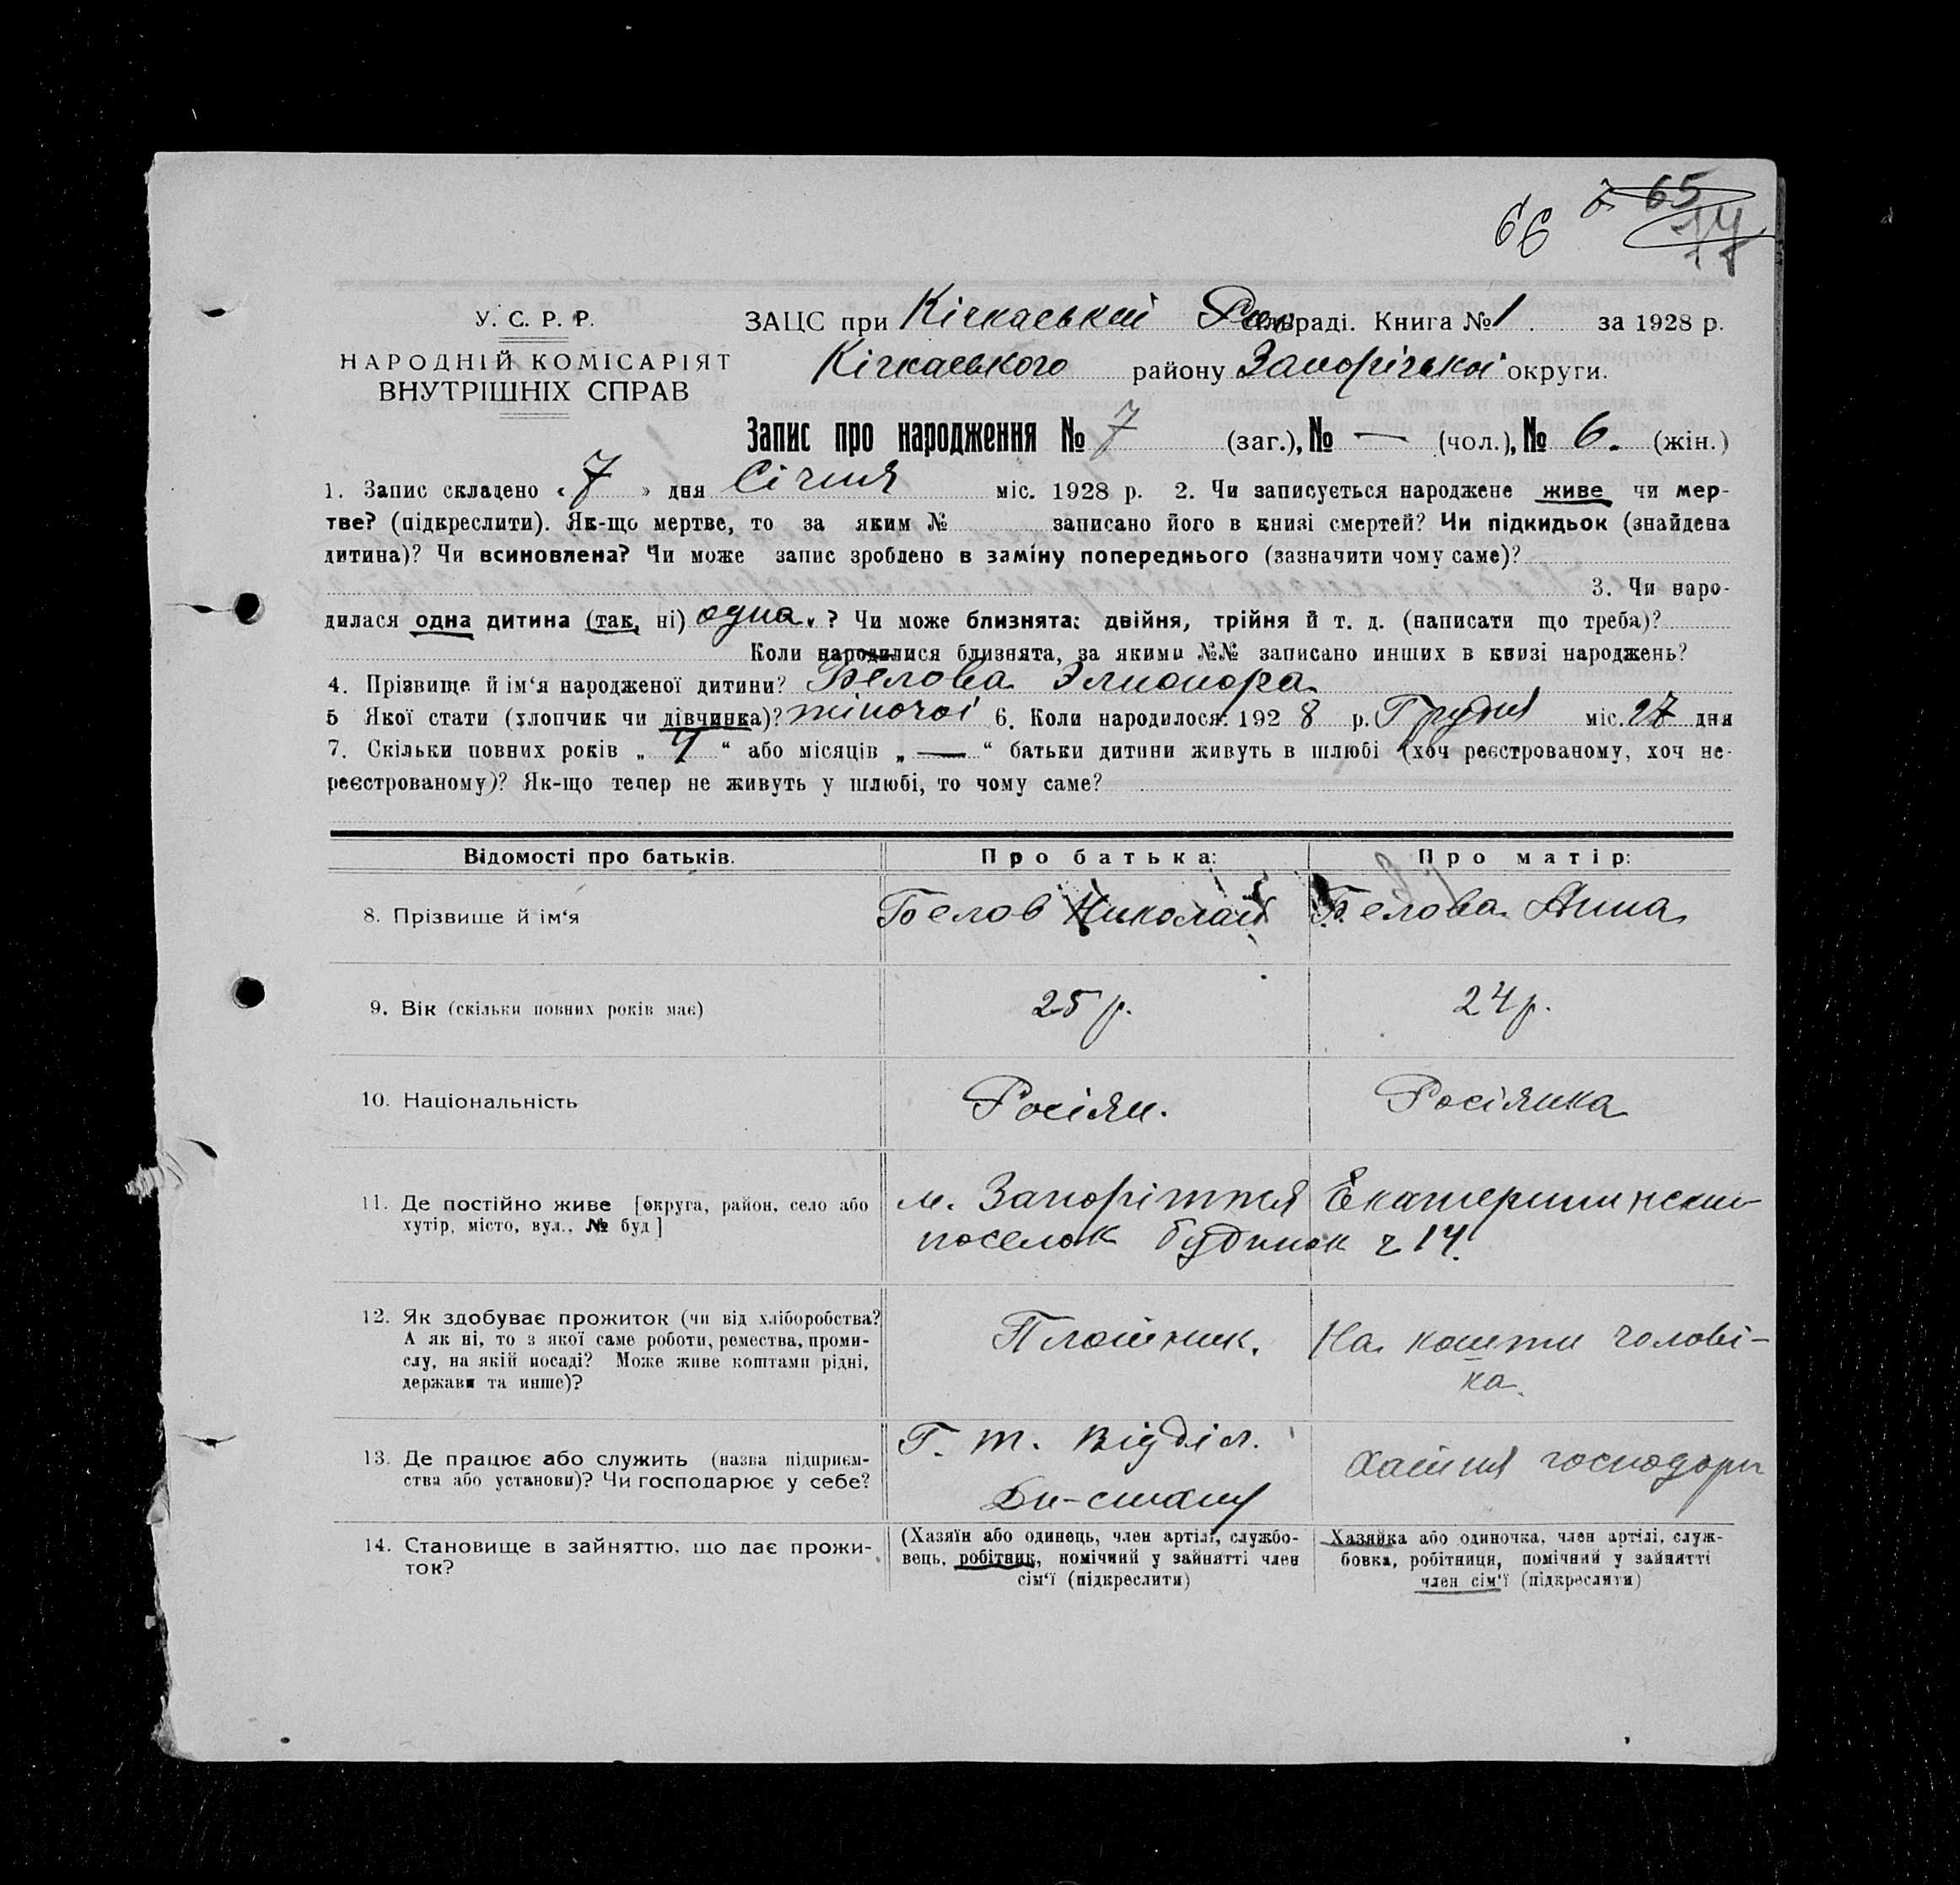 66 65
У. С. Р. Р.
НАРОДНІЙ КОМІСАРІЯТ
ВНУТРІШНІХ СПРАВ
ЗАЦС при Кічкаській сільраді. Книга № 1 за 1928 р.
Кічкаського району Запорізької округи.
Запис про народження № 7 (заг.), № — (чол.), № 6. (жін.)
1. Запис складено «7» дня Січня міс. 1928 р. 2. Чи записується народжене живе чи мер-
тве? (підкреслити). Як-що мертве, то за яким № записано його в книзі смертей? Чи підкидьок (знайдена
дитина)? Чи всиновлена? Чи може запис зроблено в заміну попереднього (зазначити чому саме)?
3. Чи наро-
дилася одна дитина (так, ні) одна. ? Чи може близнята: двійня, трійня й т. д. (написати що треба)?
Коли народилися близнята, за якими №№ записано инших в книзі народжень?
4. Прізвище й ім'я народженої дитини? Белова Элионора
5 Якої стати (хлопчик чи дівчинка)? жіночої 6. Коли народилося: 1928 р. Грудня міс. 27 дня
7. Скільки повних років „ 4 “ або місяців „ — “ батьки дитини живуть в шлюбі (хоч реєстрованому, хоч не-
реєстрованому)? Як-що тепер не живуть у шлюбі, то чому саме?
Відомості про батьків. Про батька: Про матір:
8. Прізвище й ім'я Белов Николай Белова Анна
9. Вік (скільки повних років має) 25 р. 24 р.
10. Національність Росіян. Росіянка
11. Де постійно живе [округа, район, село або
хутір, місто, вул., № буд]
м. Запоріжжя Екатерининский
поселок будинок ч 14.
12. Як здобуває прожиток (чи від хліборобства?
А як ні, то з якої саме роботи, ремества, проми-
слу, на якій посаді? Може живе коштами рідні,
держави та инше)?
Плотник. На кошти чолові-
ка.
13. Де працює або служить (назва підприєм-
ства або установи)? Чи господарює у себе?
Г. т. відділ.
Дн-стану
Хатня господарк
14. Становище в зайняттю, що дає прожи-
ток?
(Хазяїн або одинець, член артілі, службо-
вець, робітник, помічний у зайнятті член
сім'ї (підкреслити)
Хазяйка або одиночка, член артілі, служ-
бовка, робітниця, помічний у зайнятті
член сім'ї (підкреслити)